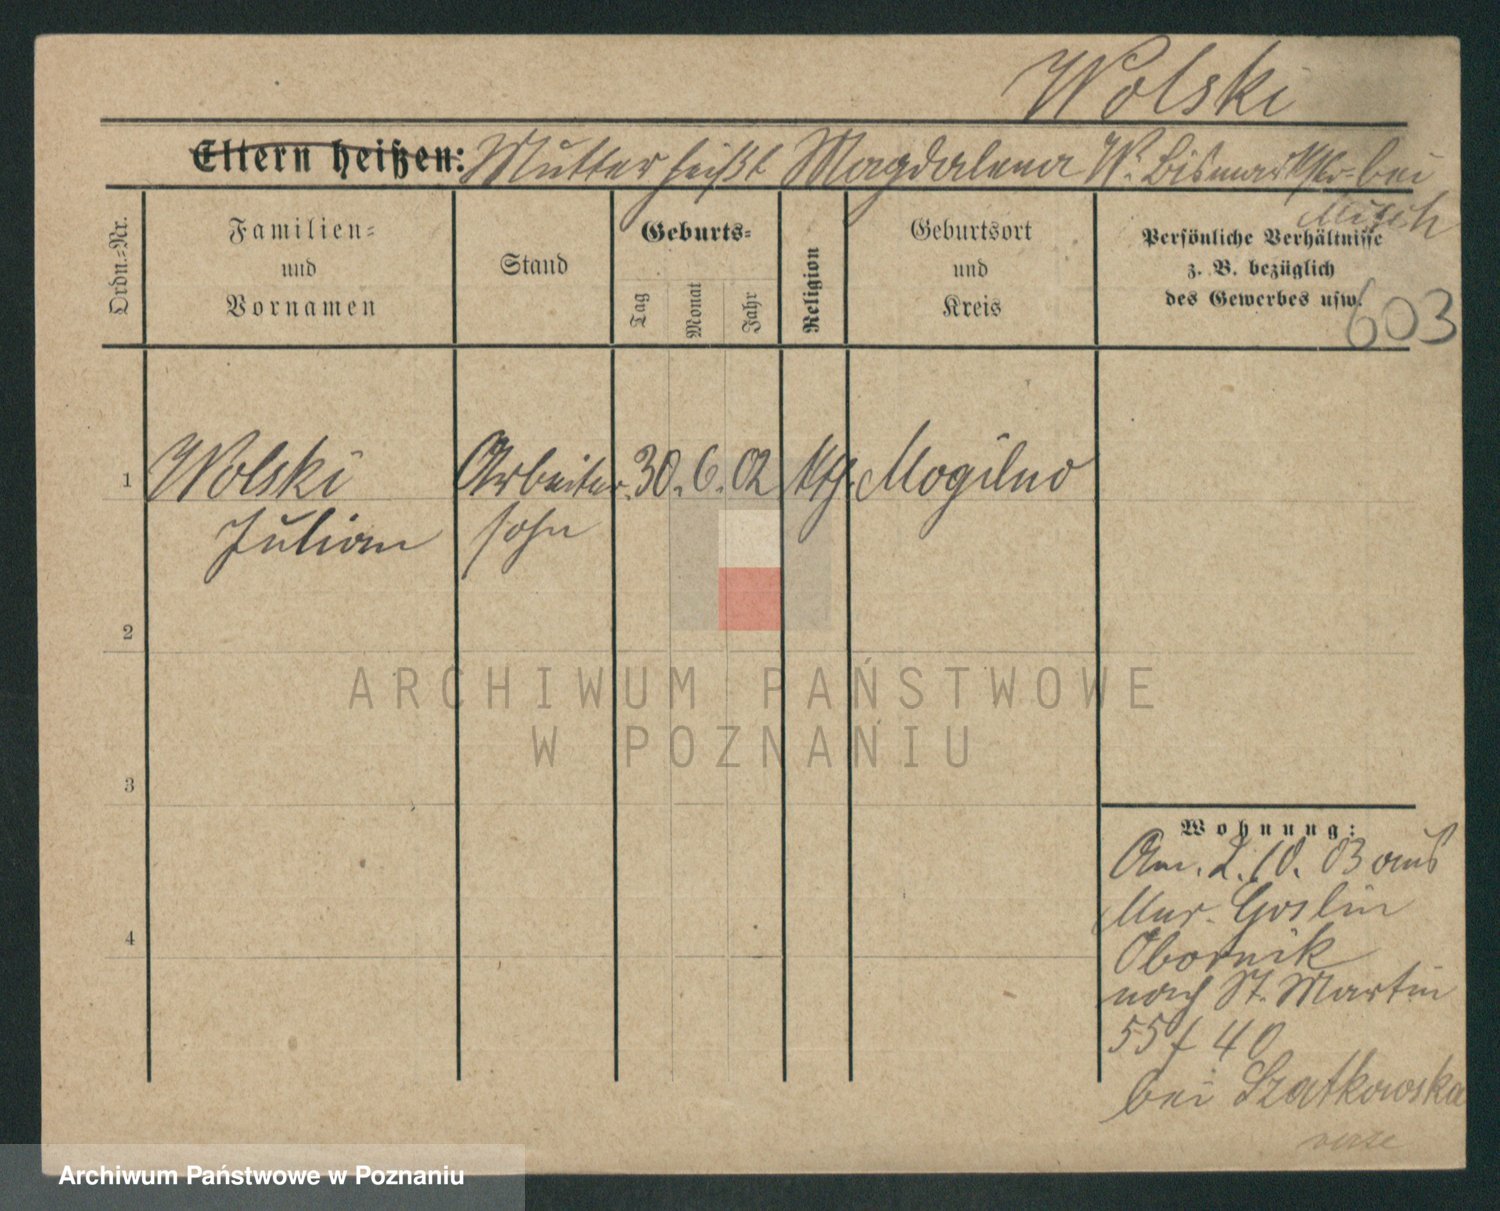 Wolski
Eltern heißen: Mutter heißt Magdalena W. Bismarkstr. bei
Misch
Ordn.-Nr.
Familien-
und
Vornamen
Stand
Geburts-
Tag
Monat
Jahr
Religion
Geburtsort
und
Kreis
Persönliche Verhältnisse
z. B. bezüglich
des Gewerbes usw.
603
1 Wolski Arbeiter 30. 6. 02 ktg. Mogilno
Julian sohn
2
3
4
Wohnung:
Am. 2. 10. 03 aus
Mur. Goslin
Obornik
nach St. Martin
55 f 40
bei Szatkowska
ARCHIWUM PAŃSTWOWE
W POZNANIU
Archiwum Państwowe w Poznaniu